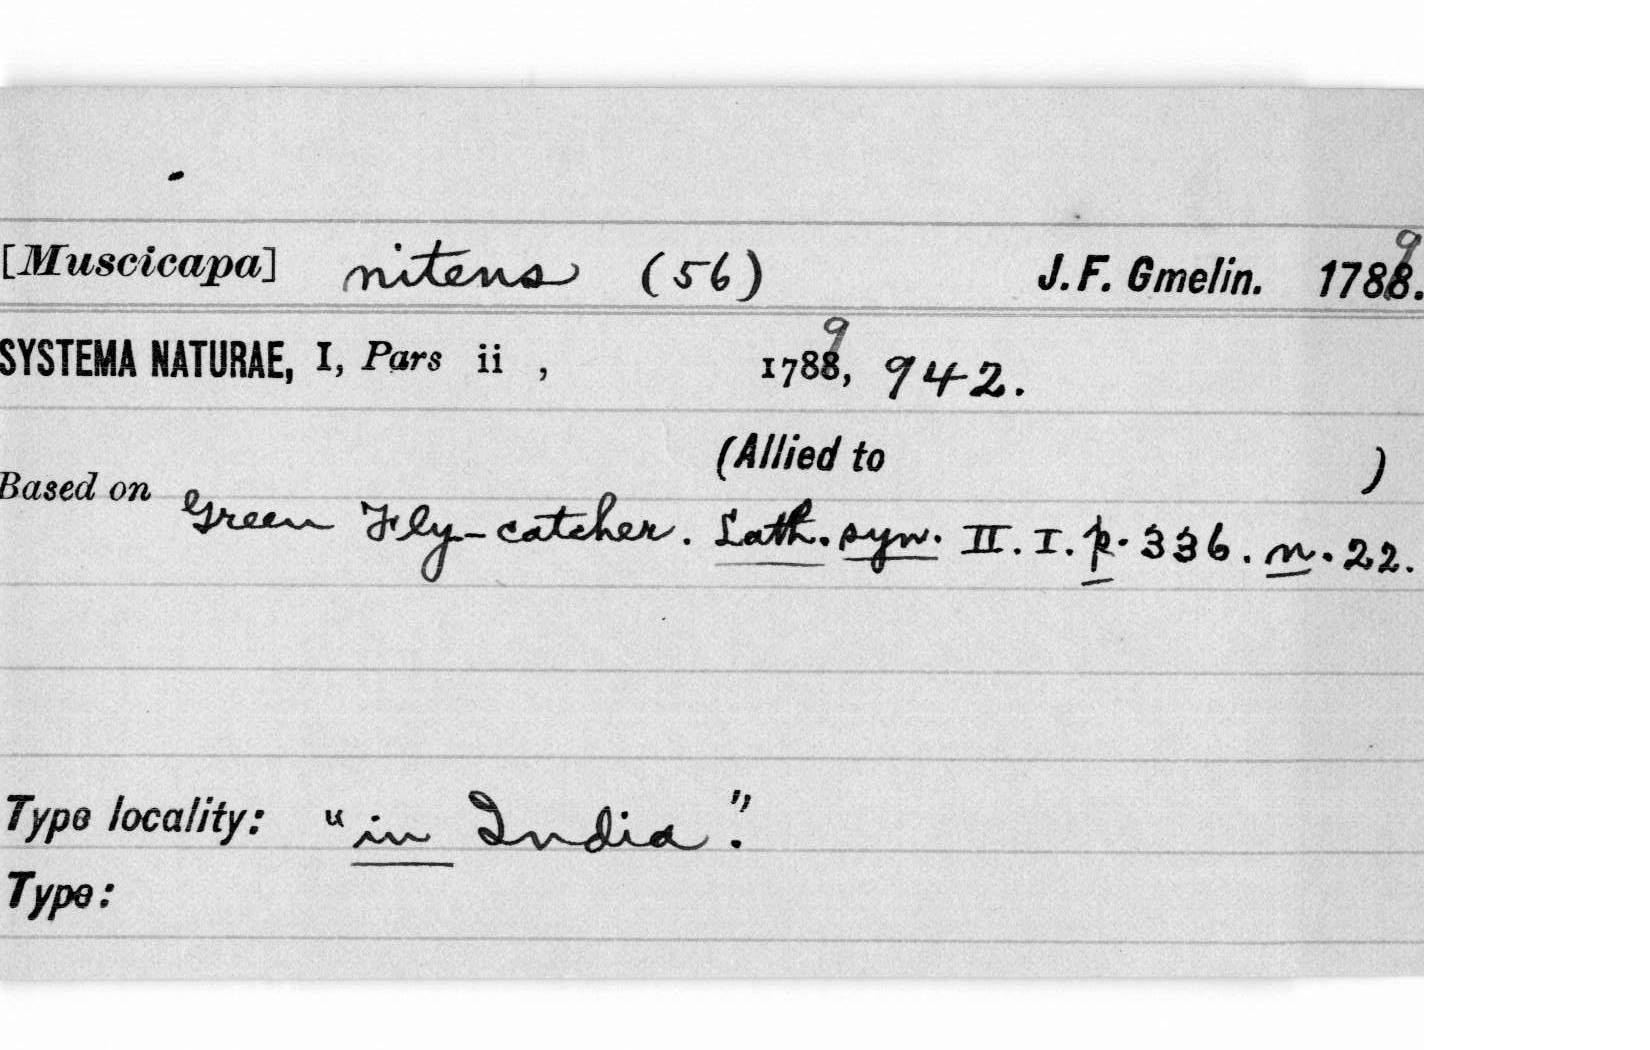 [Muscicapa] nitens (56) J. F. Gmelin. 1789.
SYSTEMA NATURAE, I, Pars ii , 1789, 942.
(Allied to )
Based on Green Fly-catcher. Lath. syn. II. I. p. 336. n. 22.
Type locality: "in India".
Type: